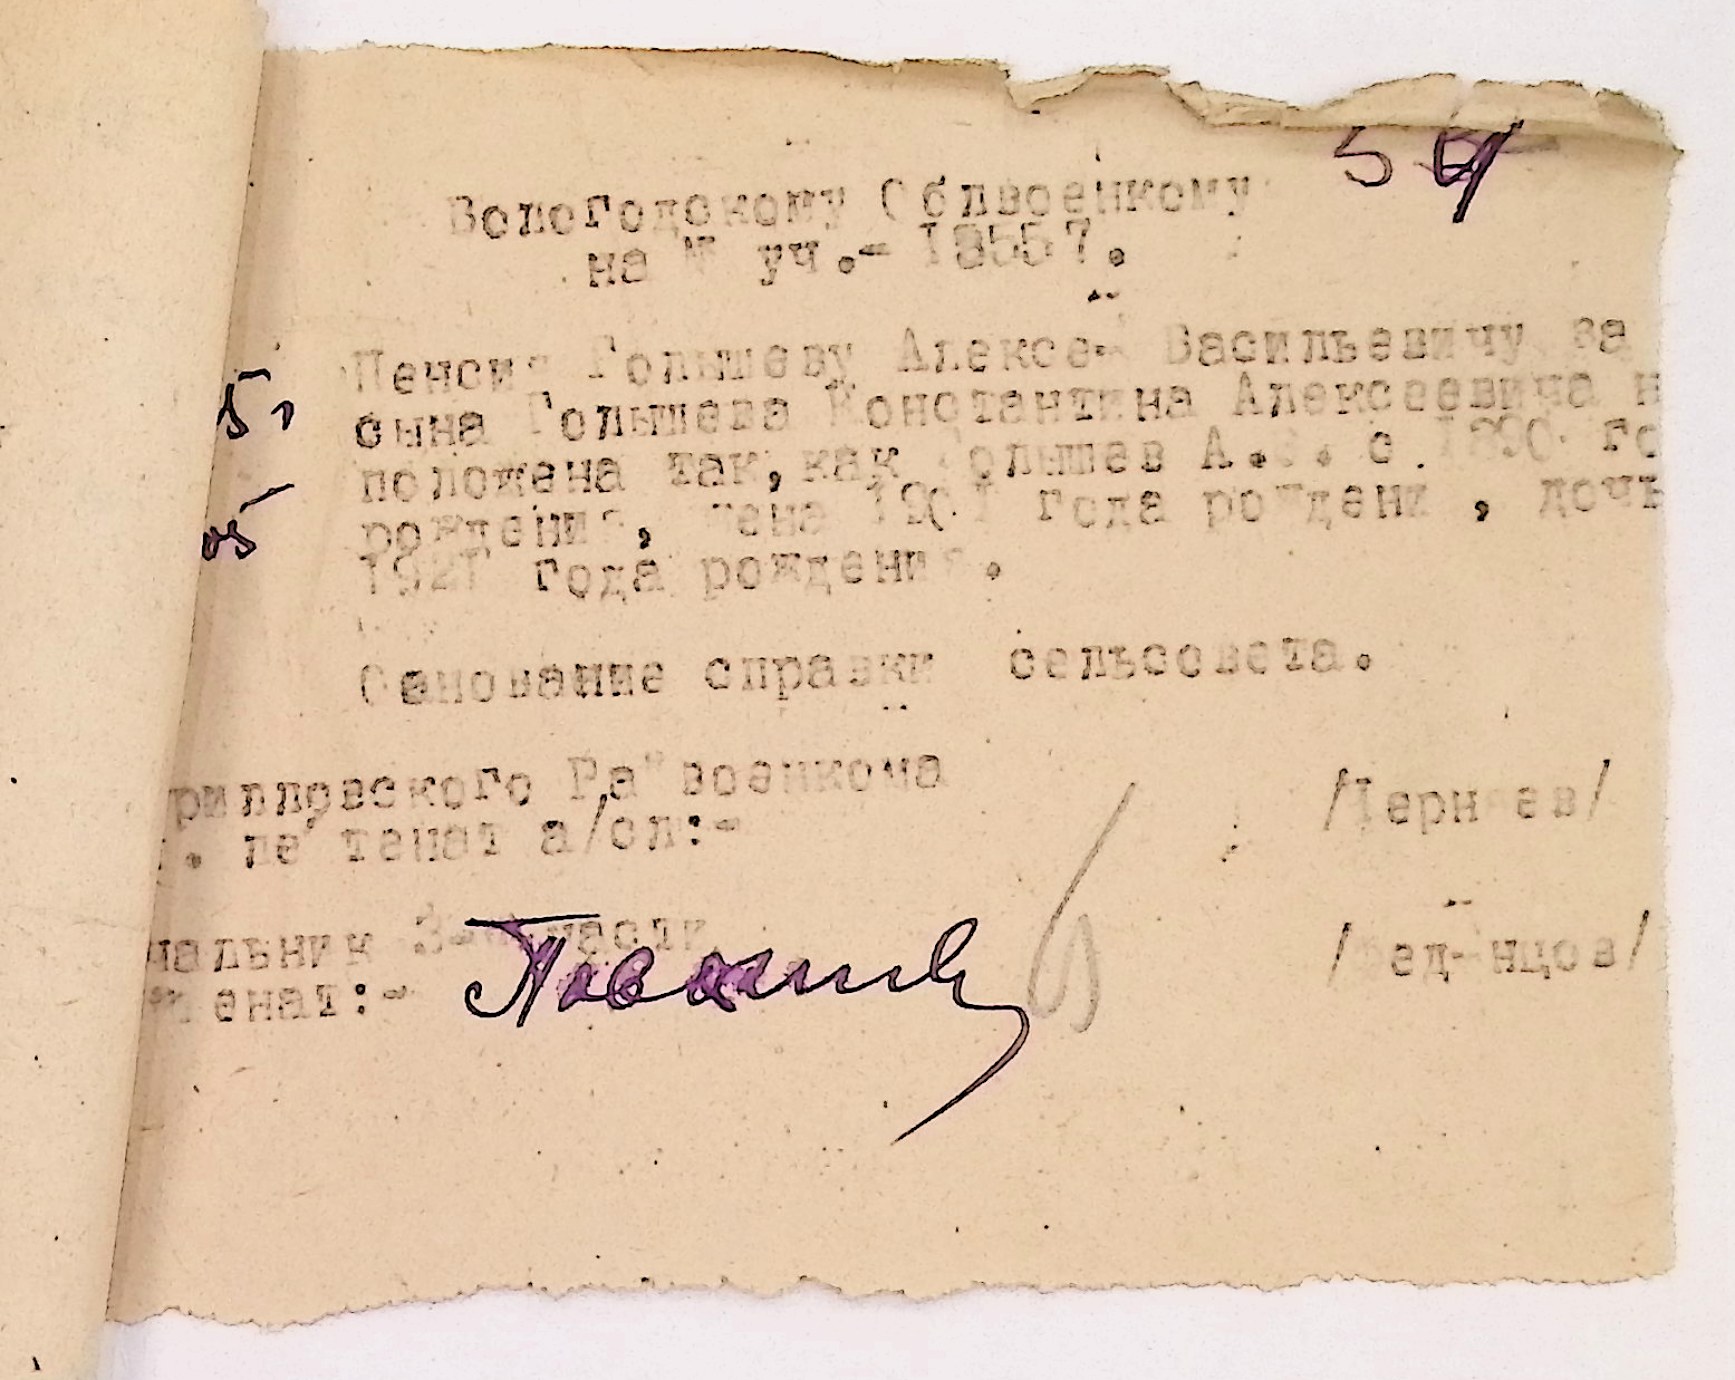 5
Вологодскому Облвоенкому
на № уч.- 18557.
Пенсия Голышеву Алексею Васильевичу за
сына Голышева Константина Алексеевича н
положена так, как Голышев А.В. с го
рождения, жена года рождения, дочь
1921 года рождения.
Основание справки сельсовета.
рилловского Райвоенкома
. лейтенант а/сл:- /Черняев/
чальник 3-й части
енант:-